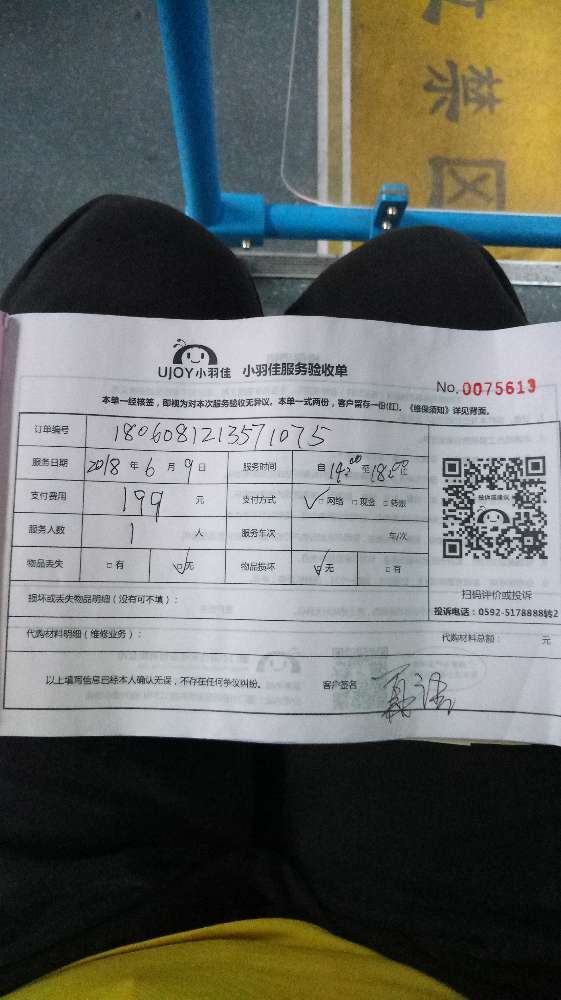 禁区
UJOY小羽佳 小羽佳服务验收单
No. 0075613
本单一经核签，即视为对本次服务验收无异议。本单一式两份，客户留存一份(红)。《维保须知》详见背面。
订单编号 1806081213571075
服务日期 2018 年 6 月 9 日 服务时间 自 14:00 至 18:00 止
支付费用 199 元 支付方式 ✓网络 □现金 □转账
服务人数 1 人 服务车次 车/次
物品丢失 □有 ☑无 物品损坏 ☑无 □有
投诉或建议
扫码评价或投诉
投诉电话：0592-5178888转2
损坏或丢失物品明细（没有可不填）：
代购材料明细（维修业务）： 代购材料总额： 元
以上填写信息已经本人确认无误，不存在任何争议纠纷。 客户签名：